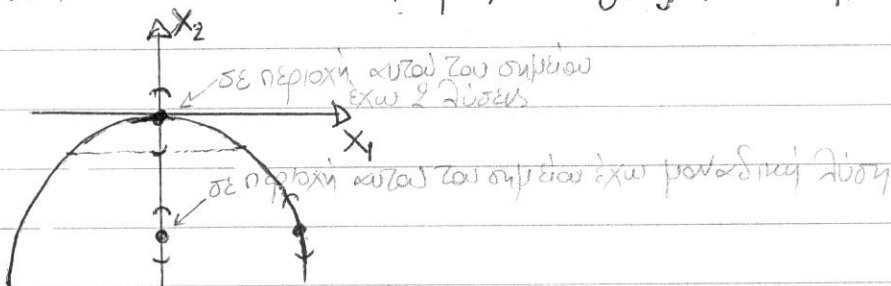 X₂
σε περιοχή αυτού του σημείου
έχω 2 λύσεις
X₁
σε περιοχή αυτού του σημείου έχω μοναδική λύση